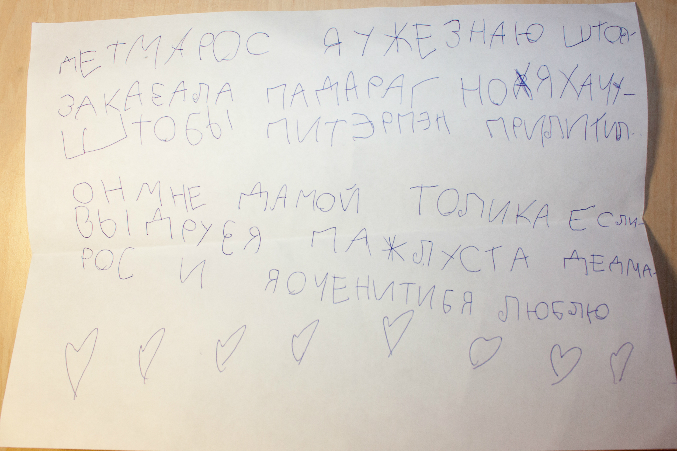 ДЕТМАРОС Я УЖЕ ЗНАЮ ШТО Я
ЗАКАЗАЛА ПАДАРАГ НО ЯХАЧУ
ШТОБЫ ПИТЭРПЭН ПРИЛИТИЛ
ОН МНЕ ДАМОЙ ТОЛИКА ЕСЛИ
ВЫ ДРУЗЯ ПАЖЛУСТА ДЕДМА-
РОС И ЯОЧЕНИТИБЯ ЛЮБЛЮ